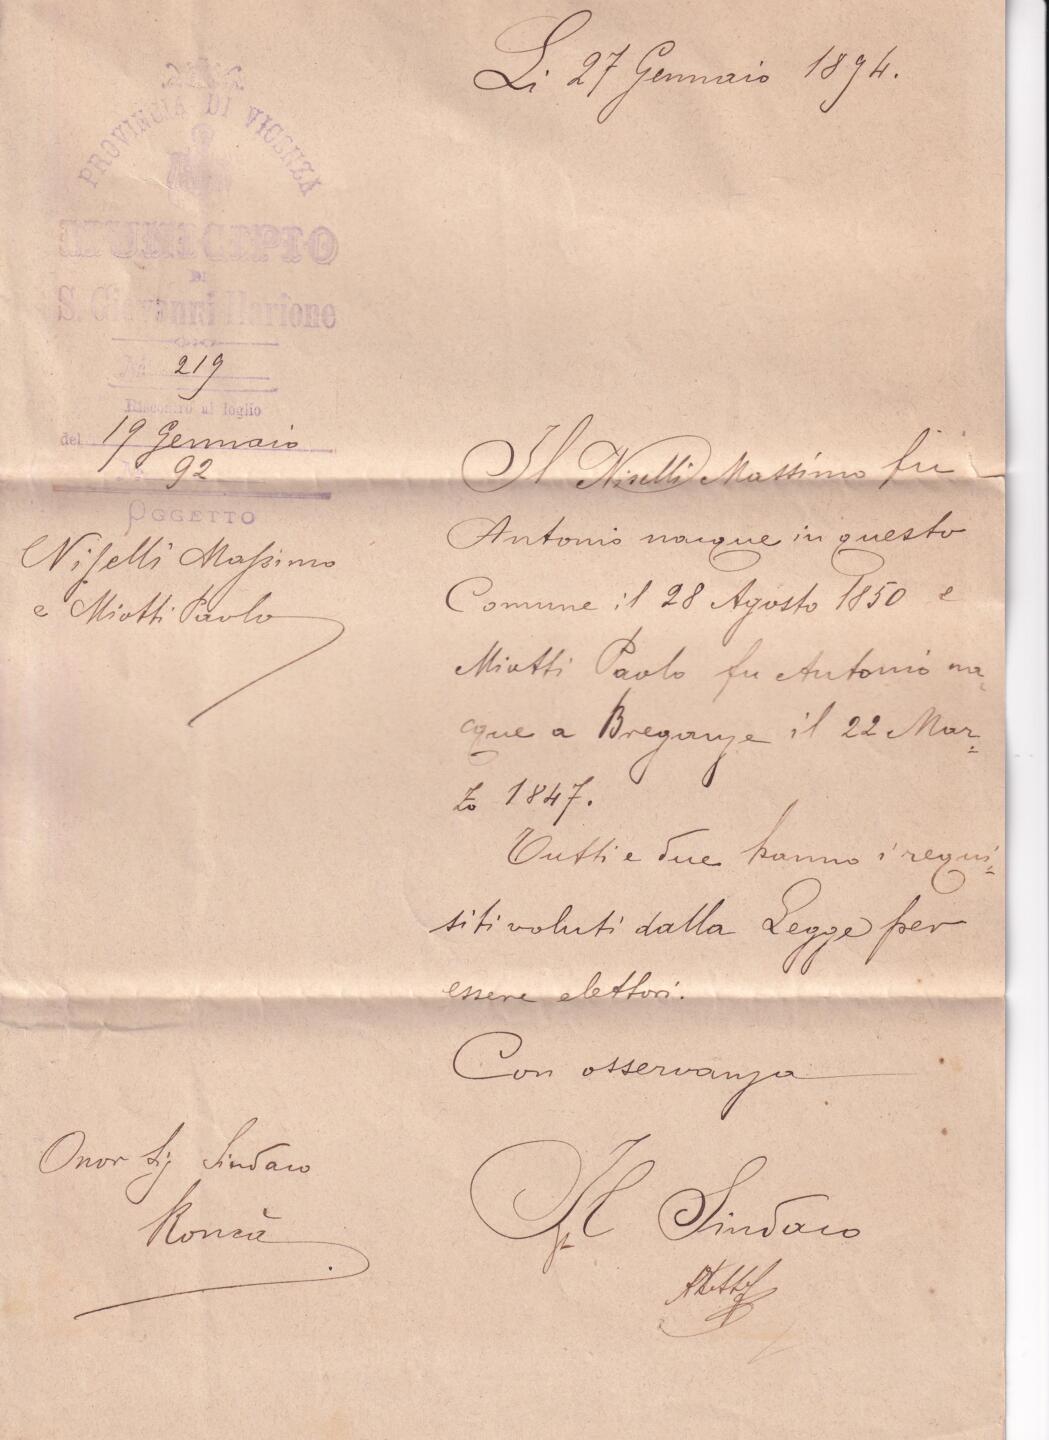 Li 27 Gennaio 1894.
PROVINCIA DI VICENZA
MUNICIPIO
DI
S. Giovanni Ilarione
No 219
Riscontro al foglio
del 19 Gennaio
No 92
OGGETTO
Niselli Massimo
e Miotti Paolo
Il Niselli Massimo fu
Antonio nacque in questo
Comune il 28 Agosto 1850 e
Miotti Paolo fu Antonio na=
cque a Breganze il 22 Mar=
zo 1847.
Tutti e due hanno i requi=
siti voluti dalla Legge per
essere elettori.
Con osservanza
Onor Sig Sindaco
Roncà
Il Sindaco